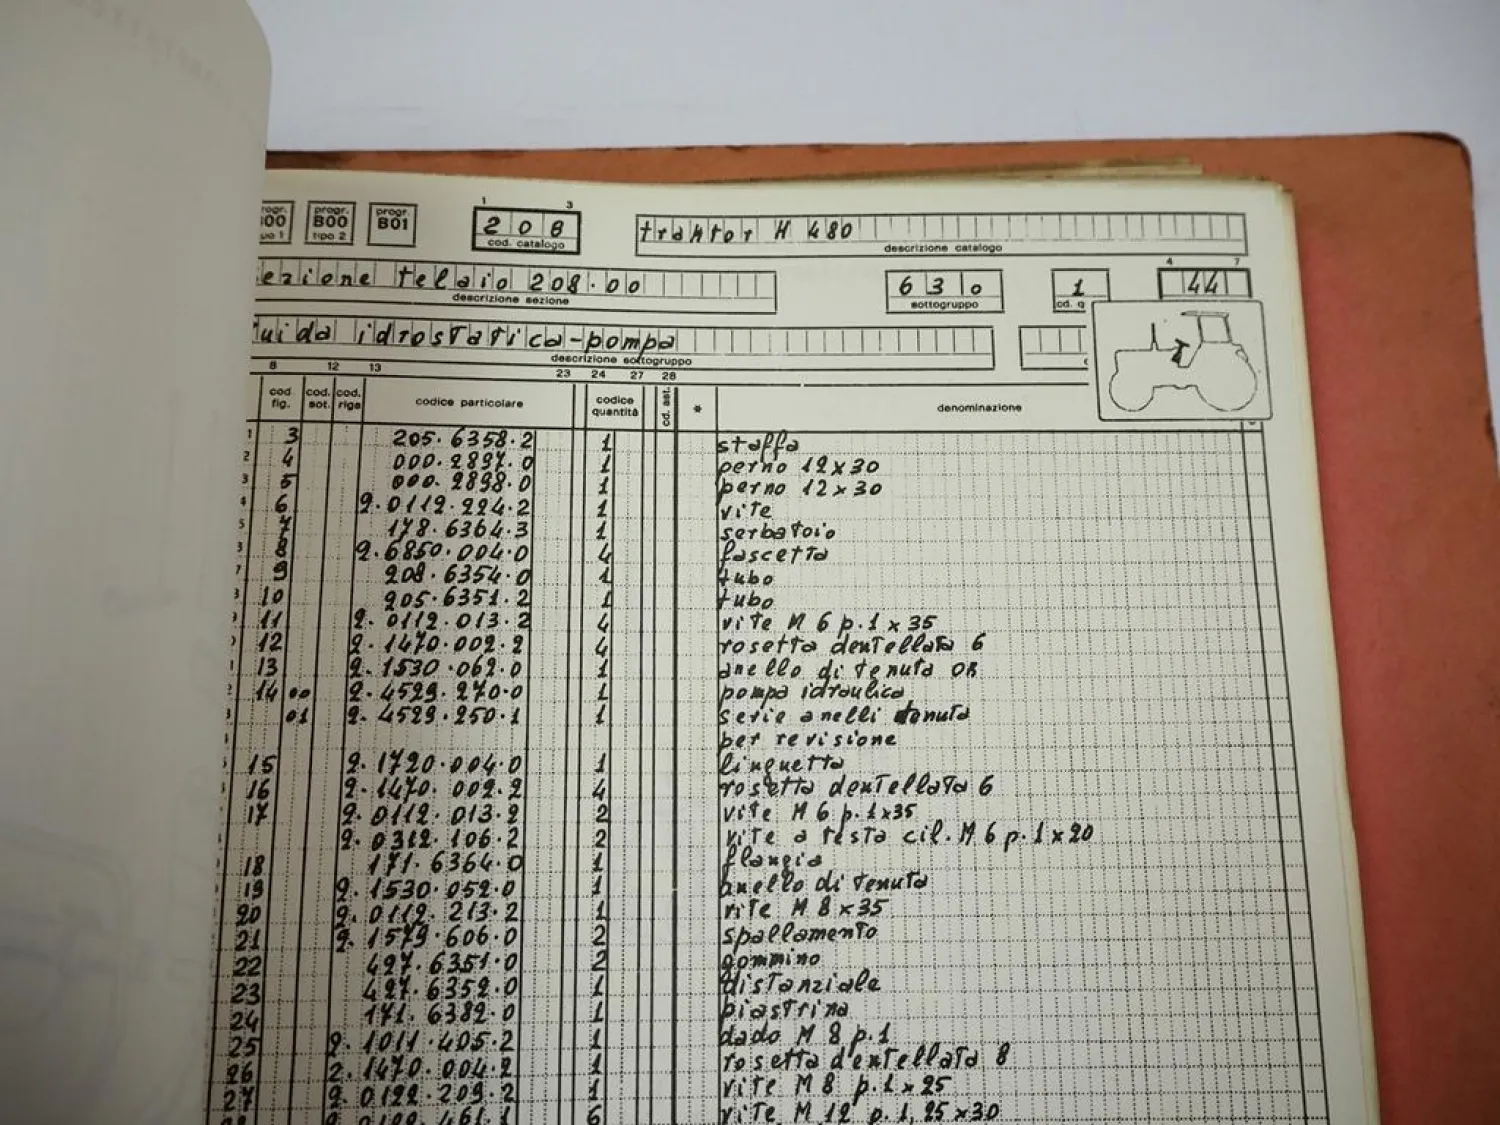 progr. progr. progr.
B00 B00 B01
tipo 2
1 3
2 0 8
cod. catalogo
traktor H 480
descrizione catalogo
ezione telaio 208.00
descrizione sezione
6 3 0
sottogruppo
1
cd. q
4 7
44
uida idrostatica-pompa
descrizione sottogruppo
8 12 13 23 24 27 28
cod. fig. cod. sot. cod. riga codice particolare codice quantità cd. ast. * denominazione
1 3 205.6358.2 1 staffa
2 4 000.2897.0 1 perno 12x30
3 5 000.2898.0 1 perno 12x30
4 6 2.0112.224.2 1 vite
5 7 178.6364.3 1 serbatoio
8 2.6850.004.0 4 fascetta
7 9 208.6354.0 1 tubo
10 205.6351.2 1 tubo
11 2.0112.013.2 4 vite M 6 p.1 x 35
12 2.1470.002.2 4 rosetta dentellata 6
13 2.1530.062.0 1 anello di tenuta OR
14 00 2.4529.270.0 1 pompa idraulica
01 2.4529.250.1 1 serie anelli tenuta
per revisione
15 2.1720.004.0 1 linguetta
16 2.1470.002.2 4 rosetta dentellata 6
17 2.0112.013.2 2 vite M 6 p.1x35
2.0312.106.2 2 vite a testa cil. M 6 p.1 x 20
18 171.6364.0 1 flangia
19 2.1530.052.0 1 anello di tenuta
20 2.0112.213.2 1 vite M 8 x 35
21 2.1579.606.0 2 spallamento
22 427.6351.0 2 gommino
23 427.6352.0 1 distanziale
24 171.6382.0 1 piastrina
25 2.1011.405.2 1 dado M 8 p.1
26 2.1470.004.2 1 rosetta dentellata 8
27 2.0122.209.2 1 vite M 8 p.1 x 25
461.1 6 vite M 12 p.1,25 x 30